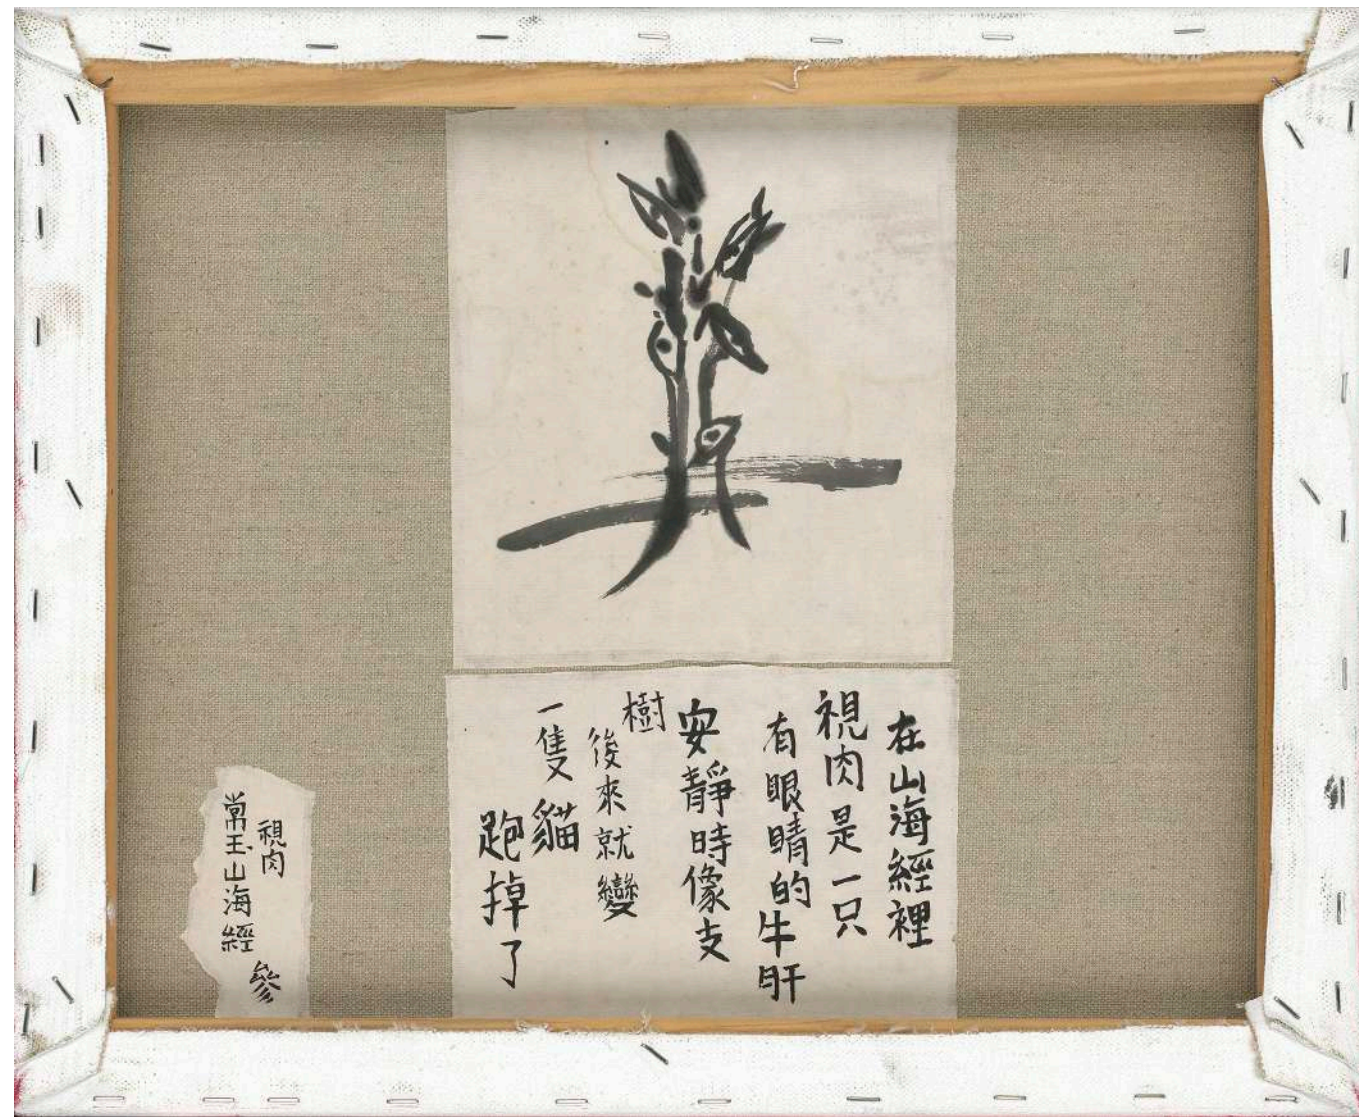 在山海經裡
視肉是一只
有眼睛的牛肝
安靜時像支
樹
後來就變
一隻貓
跑掉了
視肉
常玉山海經
參